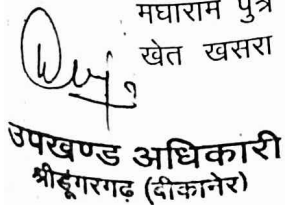 मघाराम पुत्र
खेत खसरा
उपखण्ड अधिकारी
श्रीडूंगरगढ़ (दीकानेर)